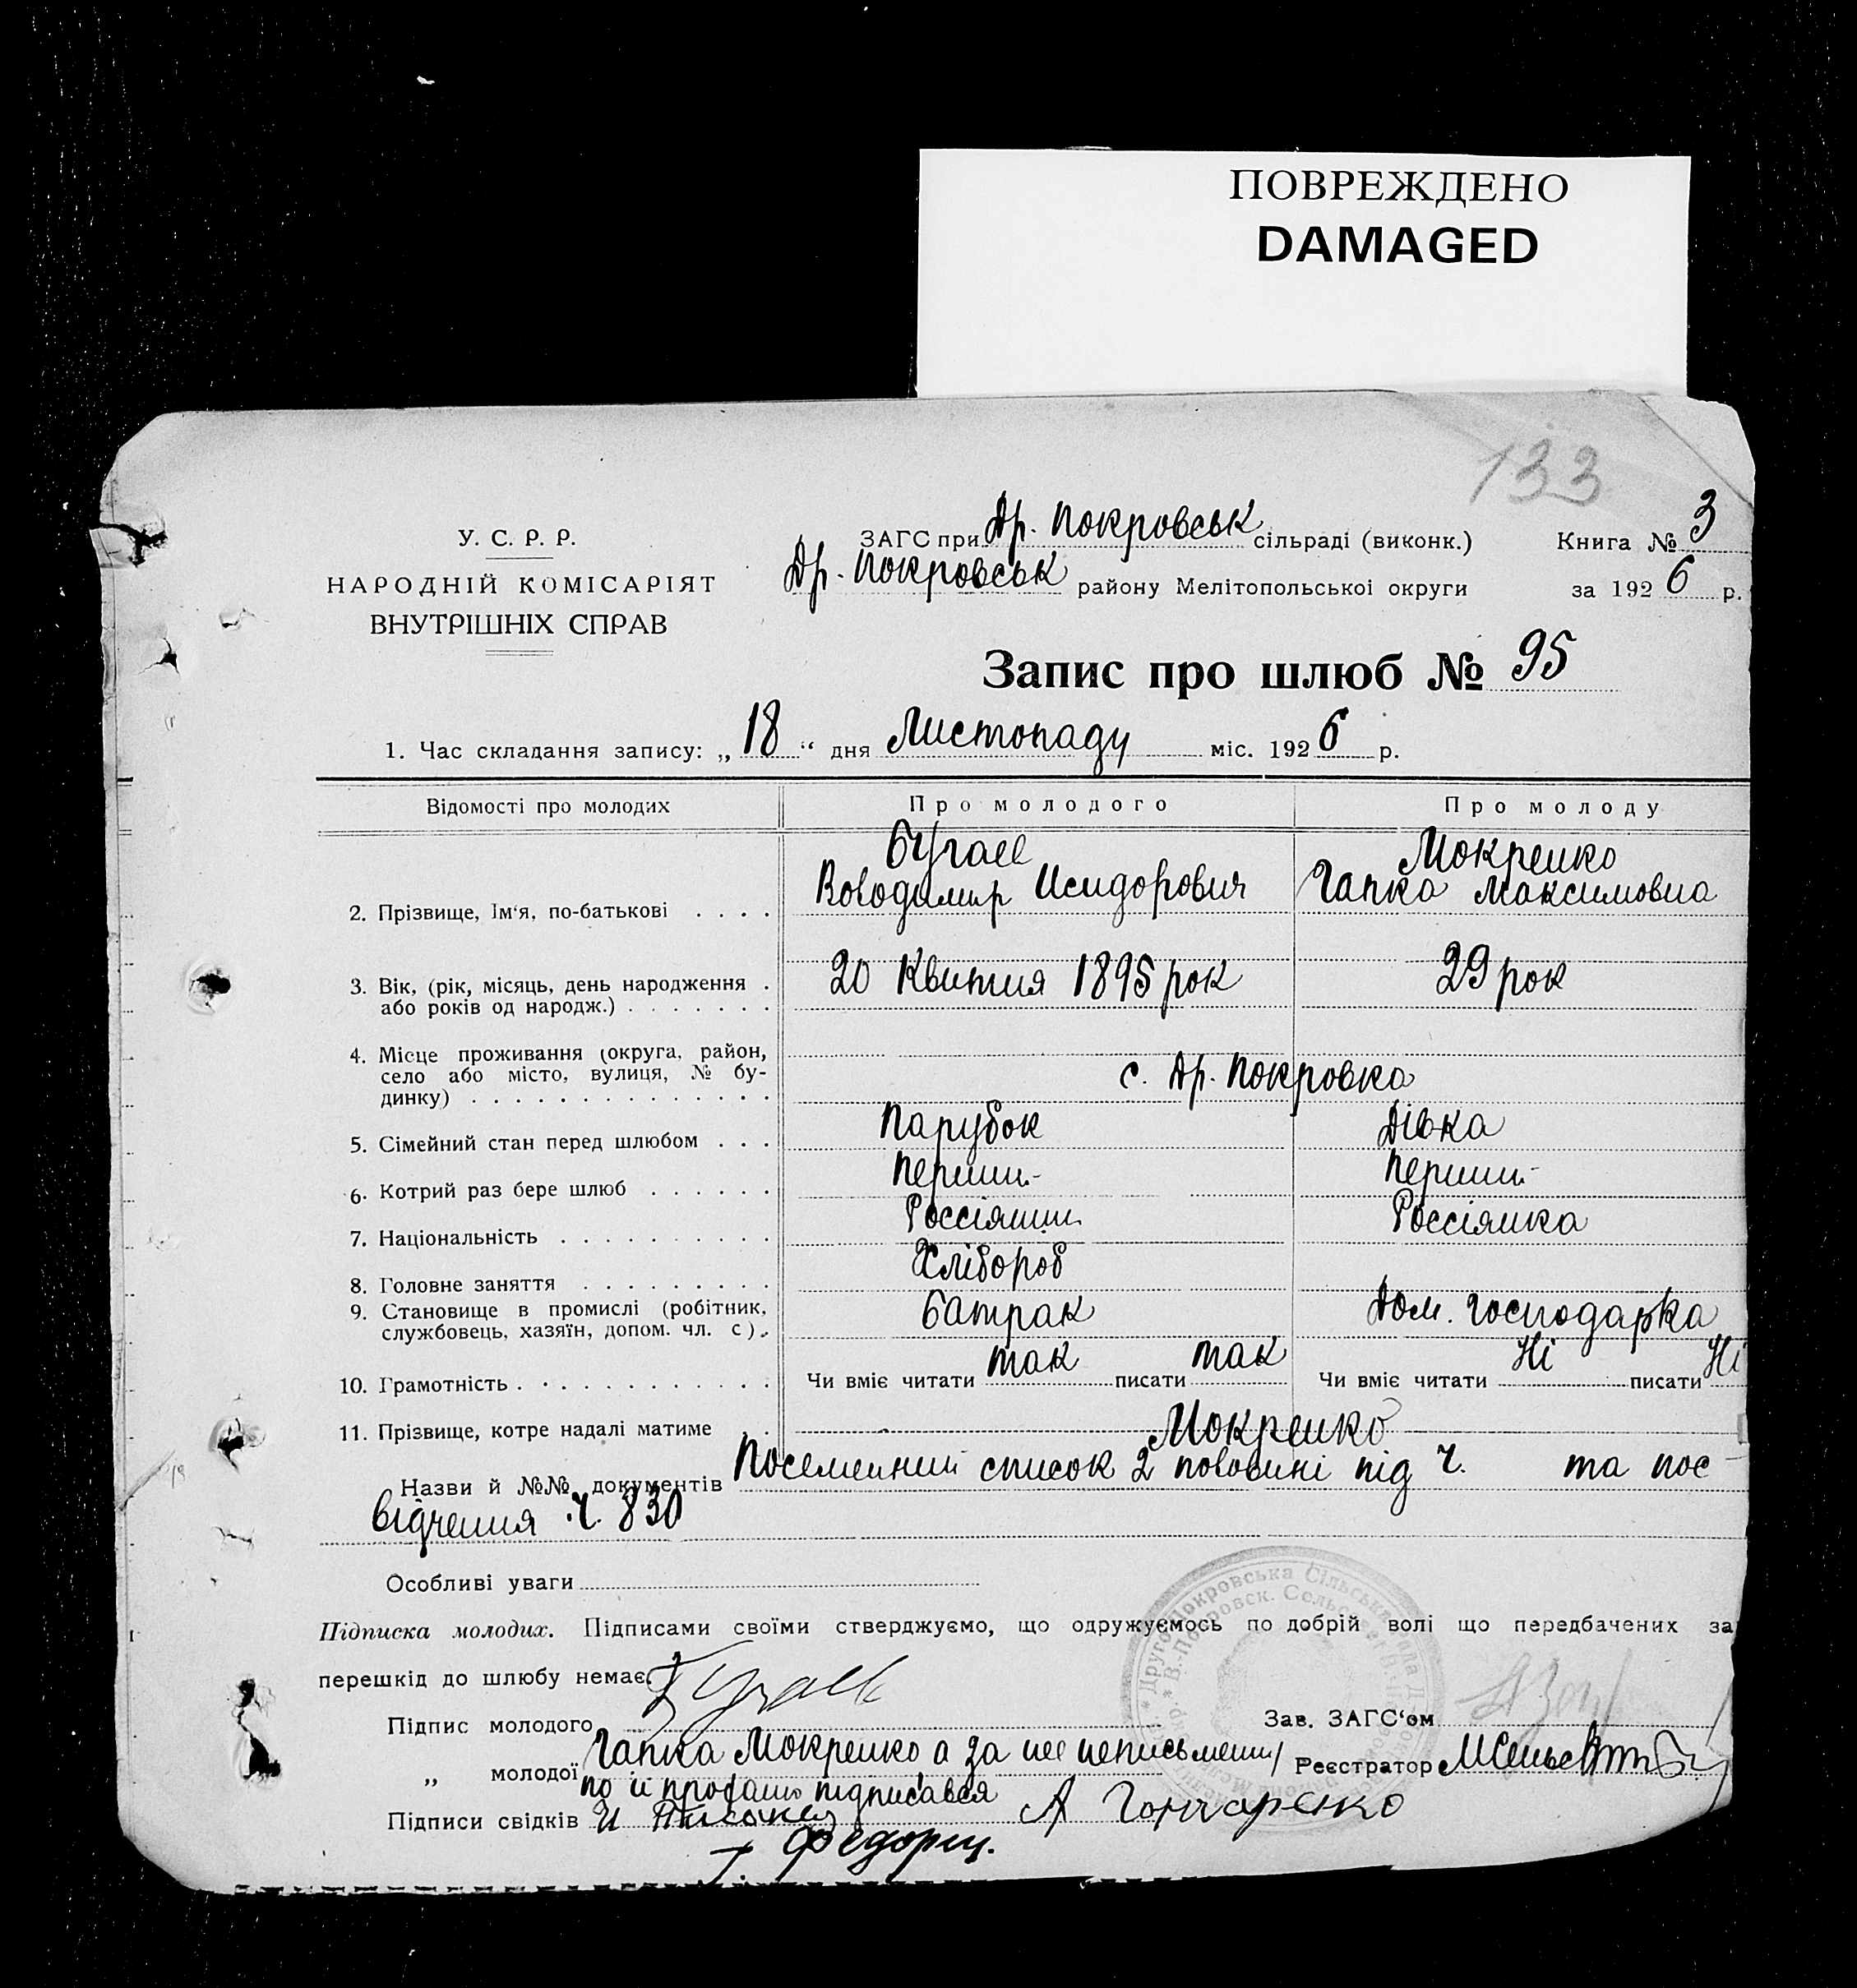 ПОВРЕЖДЕНО
DAMAGED
133
У. С. Р. Р.
НАРОДНІЙ КОМІСАРІЯТ
ВНУТРІШНІХ СПРАВ
ЗАГС при Др. Покровськ сільраді (виконк.)
Книга № 3
Др. Покровськ району Мелітопольської округи
за 1926 р.
Запис про шлюб № 95
1. Час складання запису: „18“ дня Листопаду міс. 1926 р.
Відомості про молодих
Про молодого
Про молоду
2. Прізвище, Ім'я, по-батькові . . . .
Бугаев
Володимир Исидорович
Мокренко
Гапка Максимовна
3. Вік, (рік, місяць, день народження .
або років од народж.) . . . . . . .
20 Квитня 1895 рок
29 рок
4. Місце проживання (округа, район,
село або місто, вулиця, № бу-
динку) . . . . . . . . . . . . . .
с. Др. Покровка
5. Сімейний стан перед шлюбом . . .
Парубок
Дівка
6. Котрий раз бере шлюб . . . . . .
Перший
Перший
7. Національність . . . . . . . . . .
Россіянин
Россіянка
8. Головне заняття . . . . . . . . .
Хлібороб
9. Становище в промислі (робітник,
службовець, хазяїн, допом. чл. с).
батрак
Дом. господарка
10. Грамотність . . . . . . . . . . . .
Чи вміє читати так писати так
Чи вміє читати Ні писати Ні
11. Прізвище, котре надалі матиме . .
Мокренко
Назви й №№ документів Посемейний список 2 половині під ч. та пос-
відчення ч. 830
Особливі уваги
Підписка молодих. Підписами своїми стверджуємо, що одружуємось по добрій волі що передбачених за
перешкід до шлюбу немає.
Підпис молодого Бугаев
Зав. ЗАГС'ом
„ молодої Гапка Мокренко, а за нее неписьмену
по її проханю підписався
Реєстратор
Підписи свідків И А Гончаренко
Федорец.